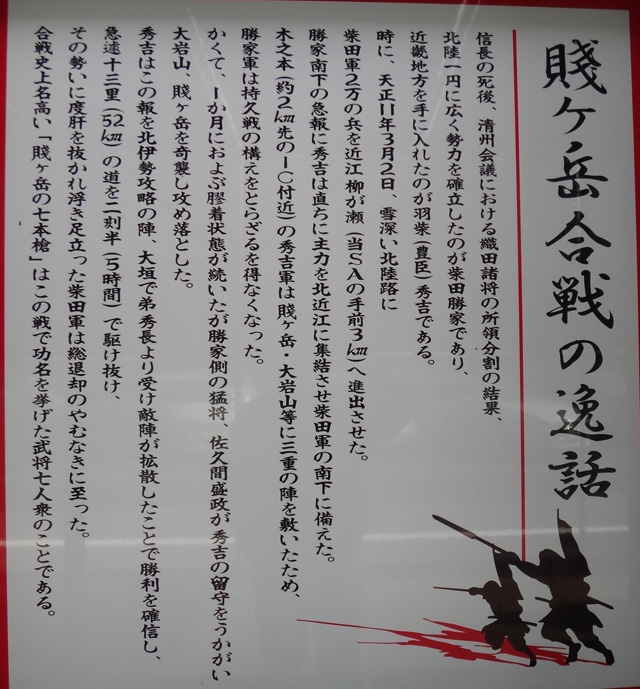 賤ヶ岳合戦の逸話
信長の死後、清州会議における織田諸将の所領分割の結果、
北陸一円に広く勢力を確立したのが柴田勝家であり、
近畿地方を手に入れたのが羽柴(豊臣)秀吉である。
時に、天正11年3月2日、雪深い北陸路に
柴田軍2万の兵を近江柳が瀬(当SAの手前3㎞)へ進出させた。
勝家南下の急報に秀吉は直ちに主力を北近江に集結させ柴田軍の南下に備えた。
木之本(約2㎞先のIC付近)の秀吉軍は賤ヶ岳・大岩山等に三重の陣を敷いたため、
勝家軍は持久戦の構えをとらざるを得なくなった。
かくて、1か月におよぶ膠着状態が続いたが勝家側の猛将、佐久間盛政が秀吉の留守をうかがい
大岩山、賤ヶ岳を奇襲し攻め落とした。
秀吉はこの報を北伊勢攻略の陣、大垣で弟秀長より受け敵陣が拡散したことで勝利を確信し、
急遽十三里(52㎞)の道を二刻半(5時間)で駆け抜け、
その勢いに度肝を抜かれ浮き足立った柴田軍は総退却のやむなきに至った。
合戦史上名高い「賤ヶ岳の七本槍」はこの戦で功名を挙げた武将七人衆のことである。